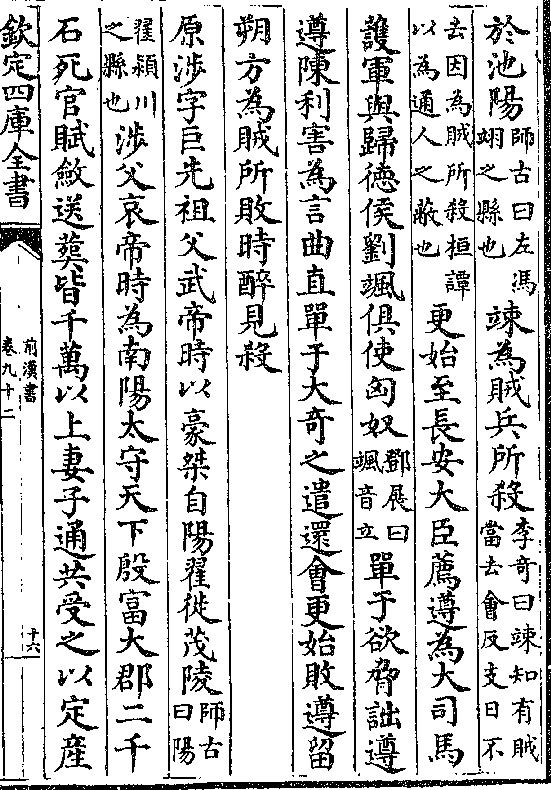 於池陽師古曰左馮翊之縣也竦為賊兵所殺李奇曰竦知有賊當去會反支日不
去因為賊所殺桓譚以為通人之蔽也更始至長安大臣薦遵為大司馬
護軍與歸徳侯劉颯俱使匈奴鄧展曰颯音立單于欲脅詘遵
遵陳利害為言曲直單于大奇之遣還會更始敗遵留
朔方為賊所敗時醉見殺
原涉字巨先祖父武帝時以豪桀自陽翟徙茂陵師古曰陽
翟潁川之縣也涉父哀帝時為南陽太守天下殷富大郡二千
石死官賦斂送葬皆千萬以上妻子通共受之以定産
欽定四庫全書
前漢書
卷九十二
十六